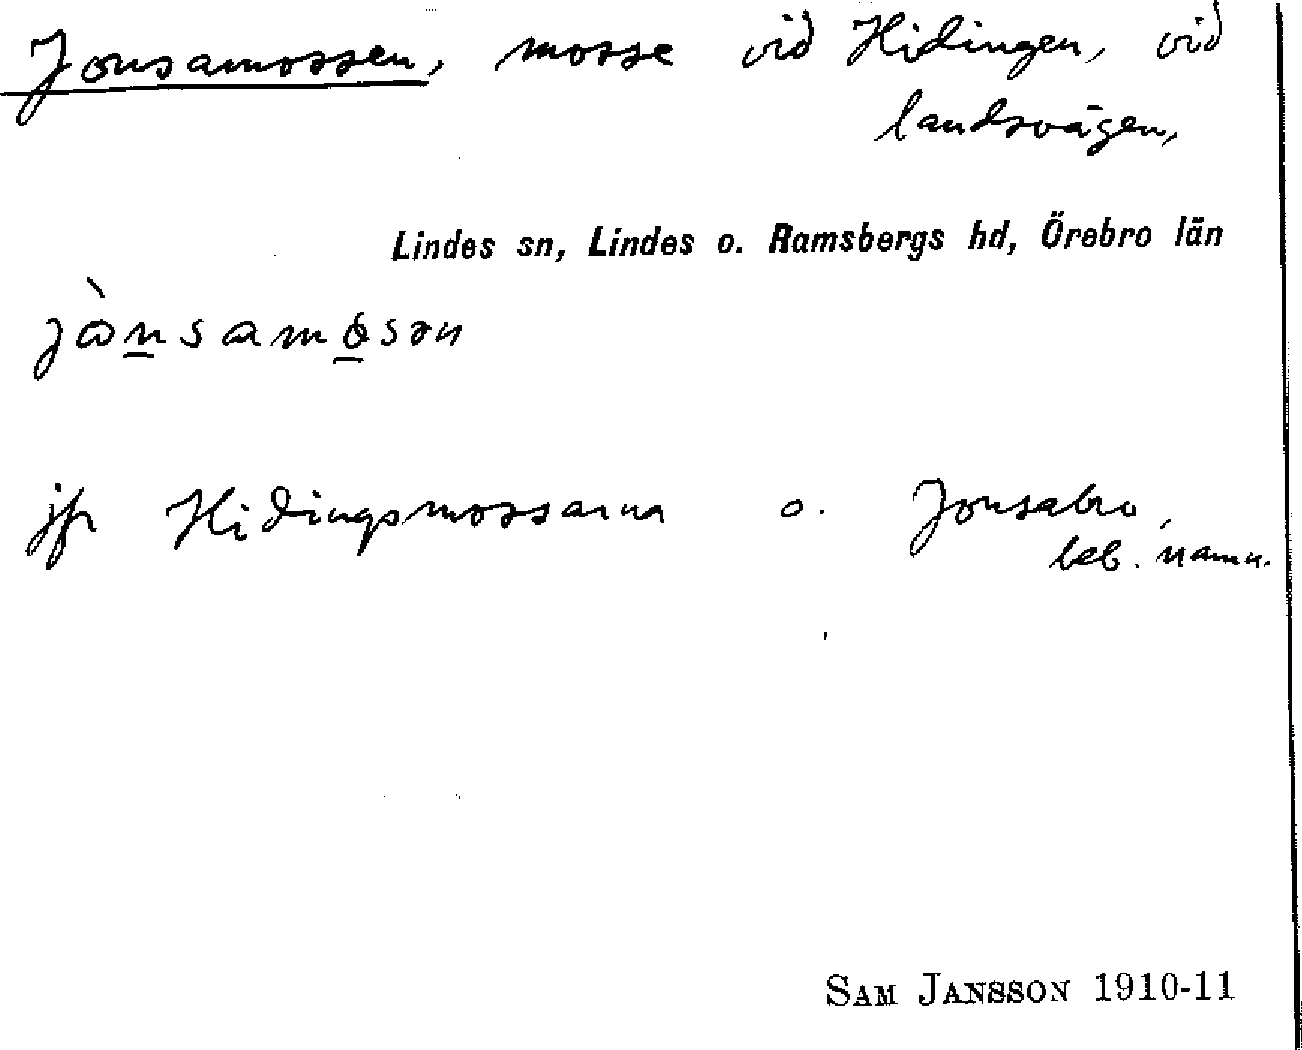 Jonsamossen, mosse vid Hidingen, vid
landsvägen,
Lindes sn, Lindes o. Ramsbergs hd, Örebro län
jὼnsamòsən
jfr Hidingsmossarna o. Jonsabro,
beb. namn.
SAM JANSSON 1910-11